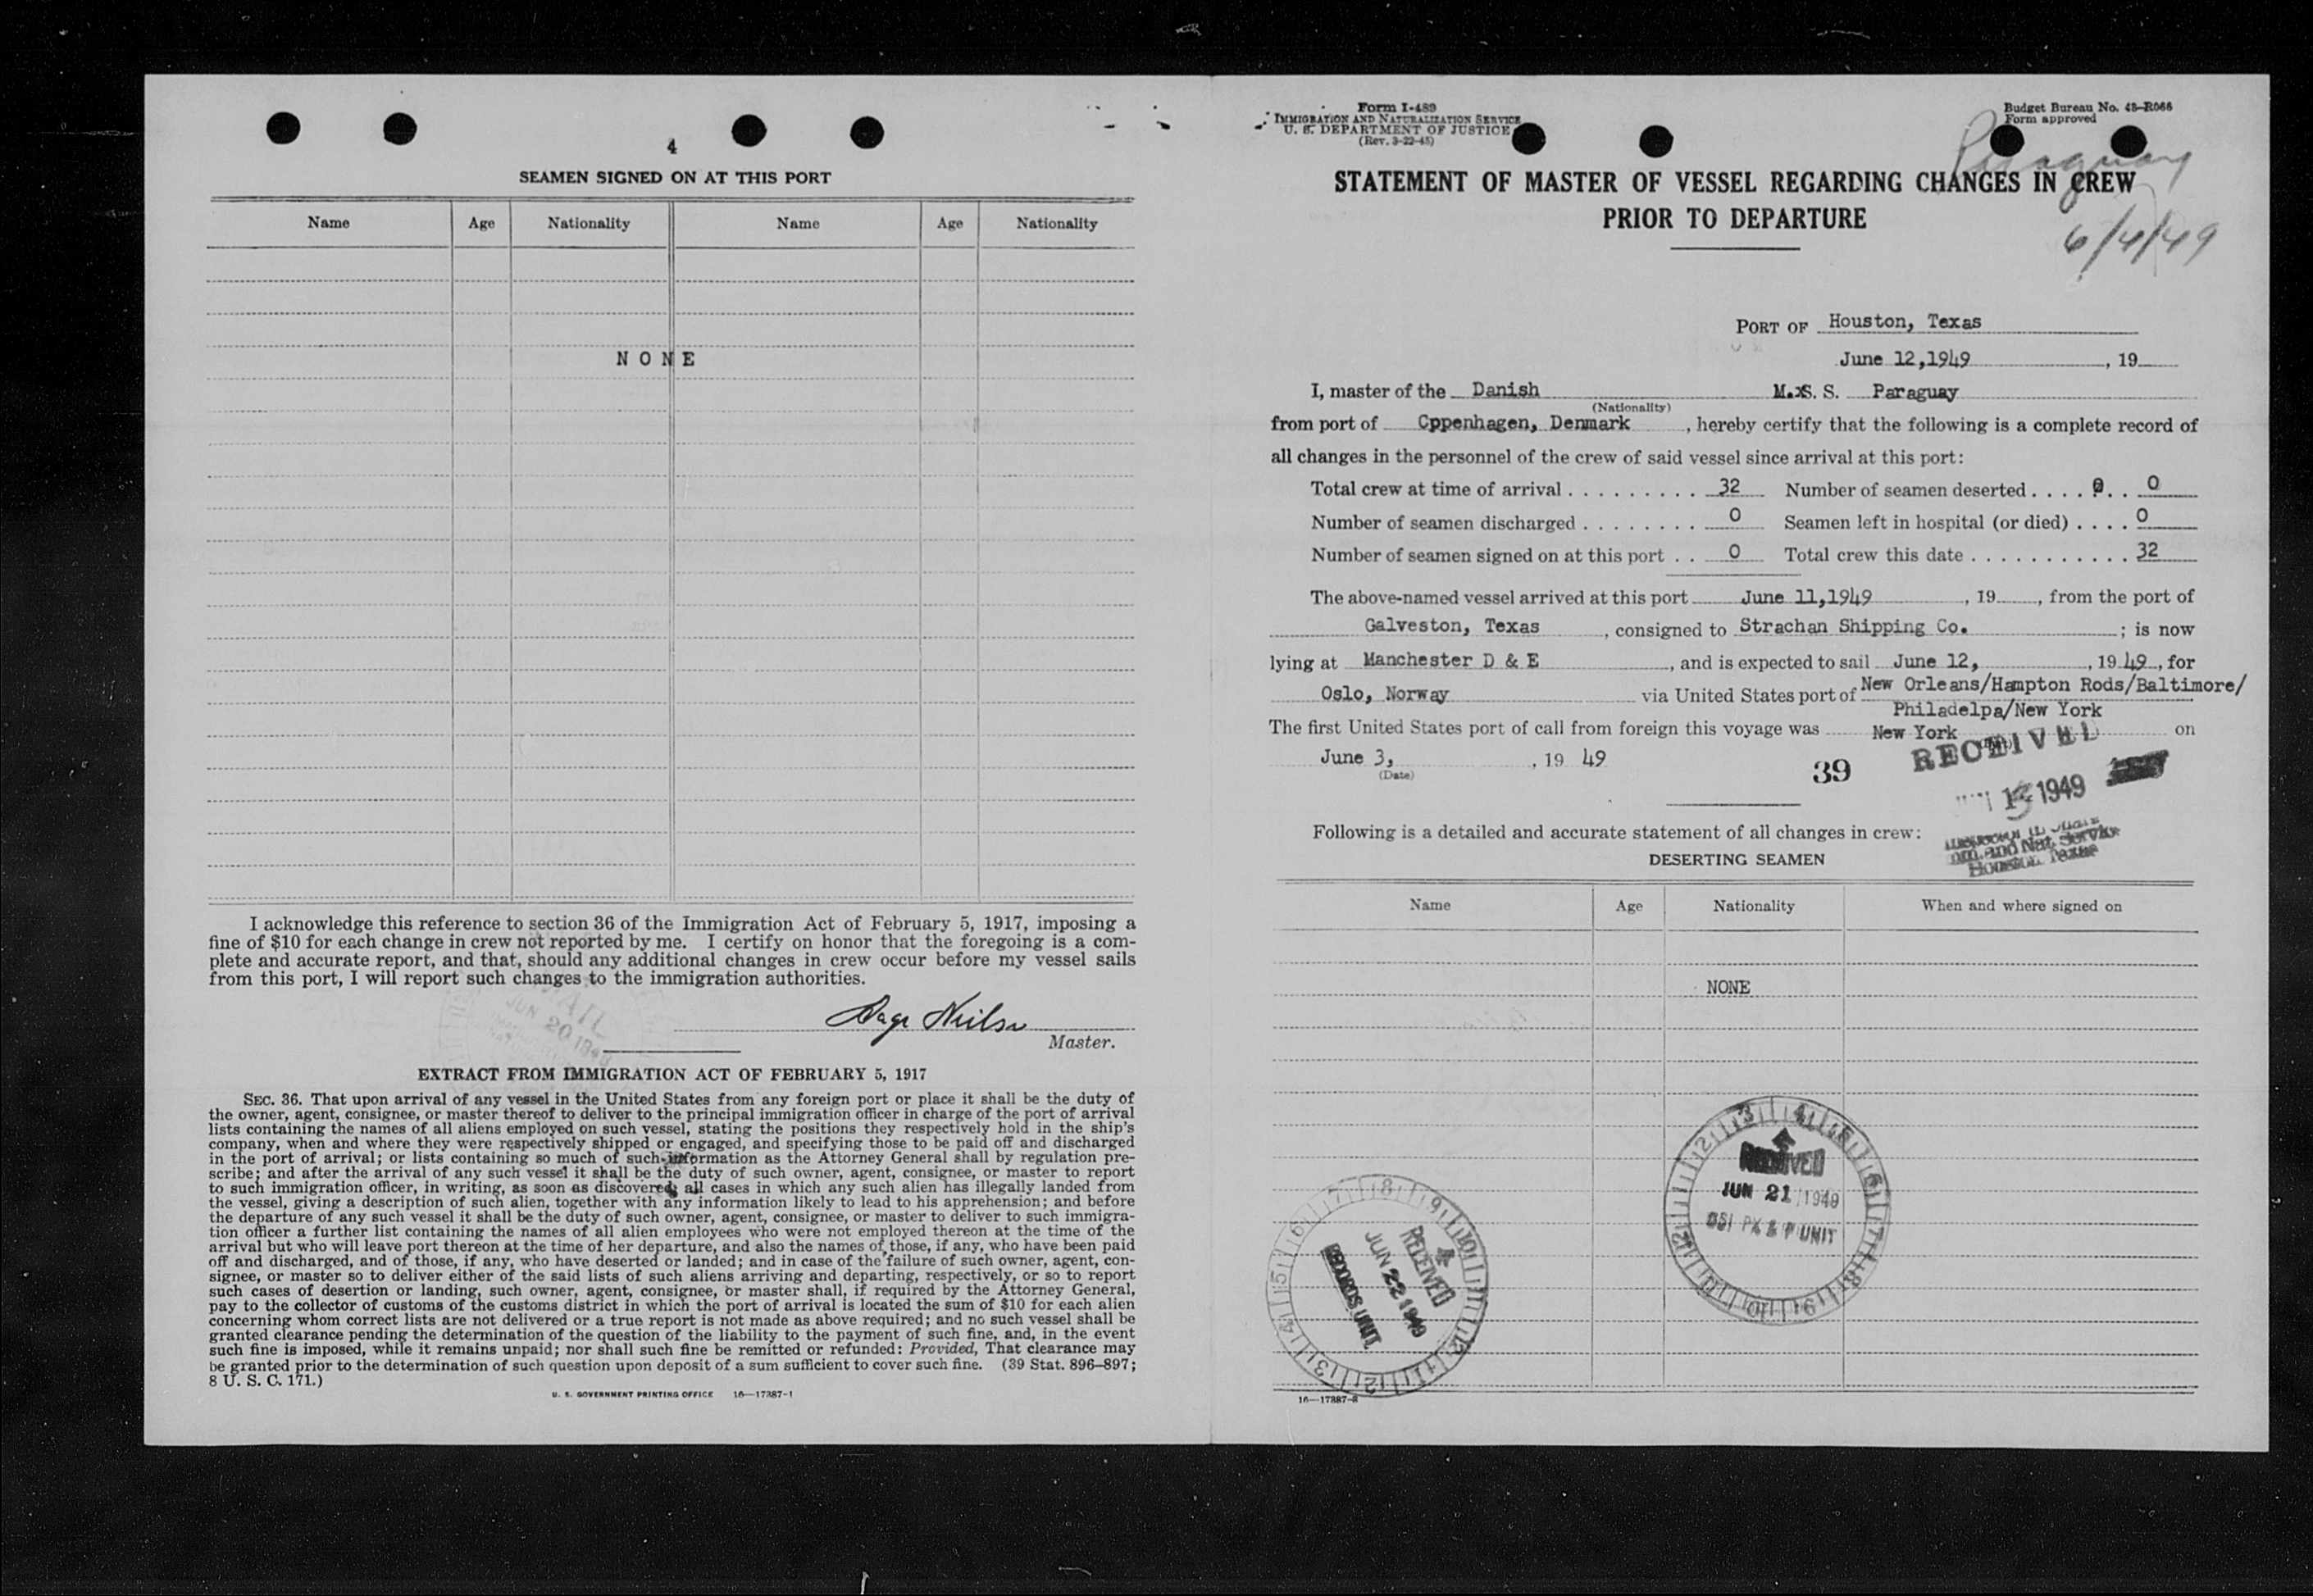 4
SEAMEN SIGNED ON AT THIS PORT
Name Age Nationality Name Age Nationality
N O N E
I acknowledge this reference to section 36 of the Immigration Act of February 5, 1917, imposing a
fine of $10 for each change in crew not reported by me. I certify on honor that the foregoing is a com-
plete and accurate report, and that, should any additional changes in crew occur before my vessel sails
from this port, I will report such changes to the immigration authorities.
JUN 20
Master.
EXTRACT FROM IMMIGRATION ACT OF FEBRUARY 5, 1917
SEC. 36. That upon arrival of any vessel in the United States from any foreign port or place it shall be the duty of
the owner, agent, consignee, or master thereof to deliver to the principal immigration officer in charge of the port of arrival
lists containing the names of all aliens employed on such vessel, stating the positions they respectively hold in the ship's
company, when and where they were respectively shipped or engaged, and specifying those to be paid off and discharged
in the port of arrival; or lists containing so much of such information as the Attorney General shall by regulation pre-
scribe; and after the arrival of any such vessel it shall be the duty of such owner, agent, consignee, or master to report
to such immigration officer, in writing, as soon as discovered, all cases in which any such alien has illegally landed from
the vessel, giving a description of such alien, together with any information likely to lead to his apprehension; and before
the departure of any such vessel it shall be the duty of such owner, agent, consignee, or master to deliver to such immigra-
tion officer a further list containing the names of all alien employees who were not employed thereon at the time of the
arrival but who will leave port thereon at the time of her departure, and also the names of those, if any, who have been paid
off and discharged, and of those, if any, who have deserted or landed; and in case of the failure of such owner, agent, con-
signee, or master so to deliver either of the said lists of such aliens arriving and departing, respectively, or so to report
such cases of desertion or landing, such owner, agent, consignee, or master shall, if required by the Attorney General,
pay to the collector of customs of the customs district in which the port of arrival is located the sum of $10 for each alien
concerning whom correct lists are not delivered or a true report is not made as above required; and no such vessel shall be
granted clearance pending the determination of the question of the liability to the payment of such fine, and, in the event
such fine is imposed, while it remains unpaid; nor shall such fine be remitted or refunded: Provided, That clearance may
be granted prior to the determination of such question upon deposit of a sum sufficient to cover such fine. (39 Stat. 896–897;
8 U. S. C. 171.)
U. S. GOVERNMENT PRINTING OFFICE 16—17387-1
Form I-489
IMMIGRATION AND NATURALIZATION SERVICE
U. S. DEPARTMENT OF JUSTICE
(Rev. 3-22-45)
Budget Bureau No. 43–R066
Form approved
Paraguay
6/4/49
STATEMENT OF MASTER OF VESSEL REGARDING CHANGES IN CREW
PRIOR TO DEPARTURE
PORT OF Houston, Texas
June 12,1949, 19
I, master of the Danish M.S. S. Paraguay
(Nationality)
from port of Cppenhagen, Denmark, hereby certify that the following is a complete record of
all changes in the personnel of the crew of said vessel since arrival at this port:
Total crew at time of arrival . . . . . . . . . . 32 Number of seamen deserted . . . . . . 0
Number of seamen discharged . . . . . . . . 0 Seamen left in hospital (or died) . . . . 0
Number of seamen signed on at this port . . 0 Total crew this date . . . . . . . . . . . . 32
The above-named vessel arrived at this port June 11,1949, 19, from the port of
Galveston, Texas, consigned to Strachan Shipping Co.; is now
lying at Manchester D & E, and is expected to sail June 12, , 19 49, for
Oslo, Norway via United States port of New Orleans/Hampton Rods/Baltimore/
Philadelpa/New York
The first United States port of call from foreign this voyage was New York on
June 3, , 19 49
(Date)
39
RECEIVED
1949
Imm. and Nat. Service
Houston, Texas
Following is a detailed and accurate statement of all changes in crew:
DESERTING SEAMEN
Name Age Nationality When and where signed on
NONE
RECEIVED
JUN 21 1949
RECEIVED
JUN 22 1949
RECORDS UNIT